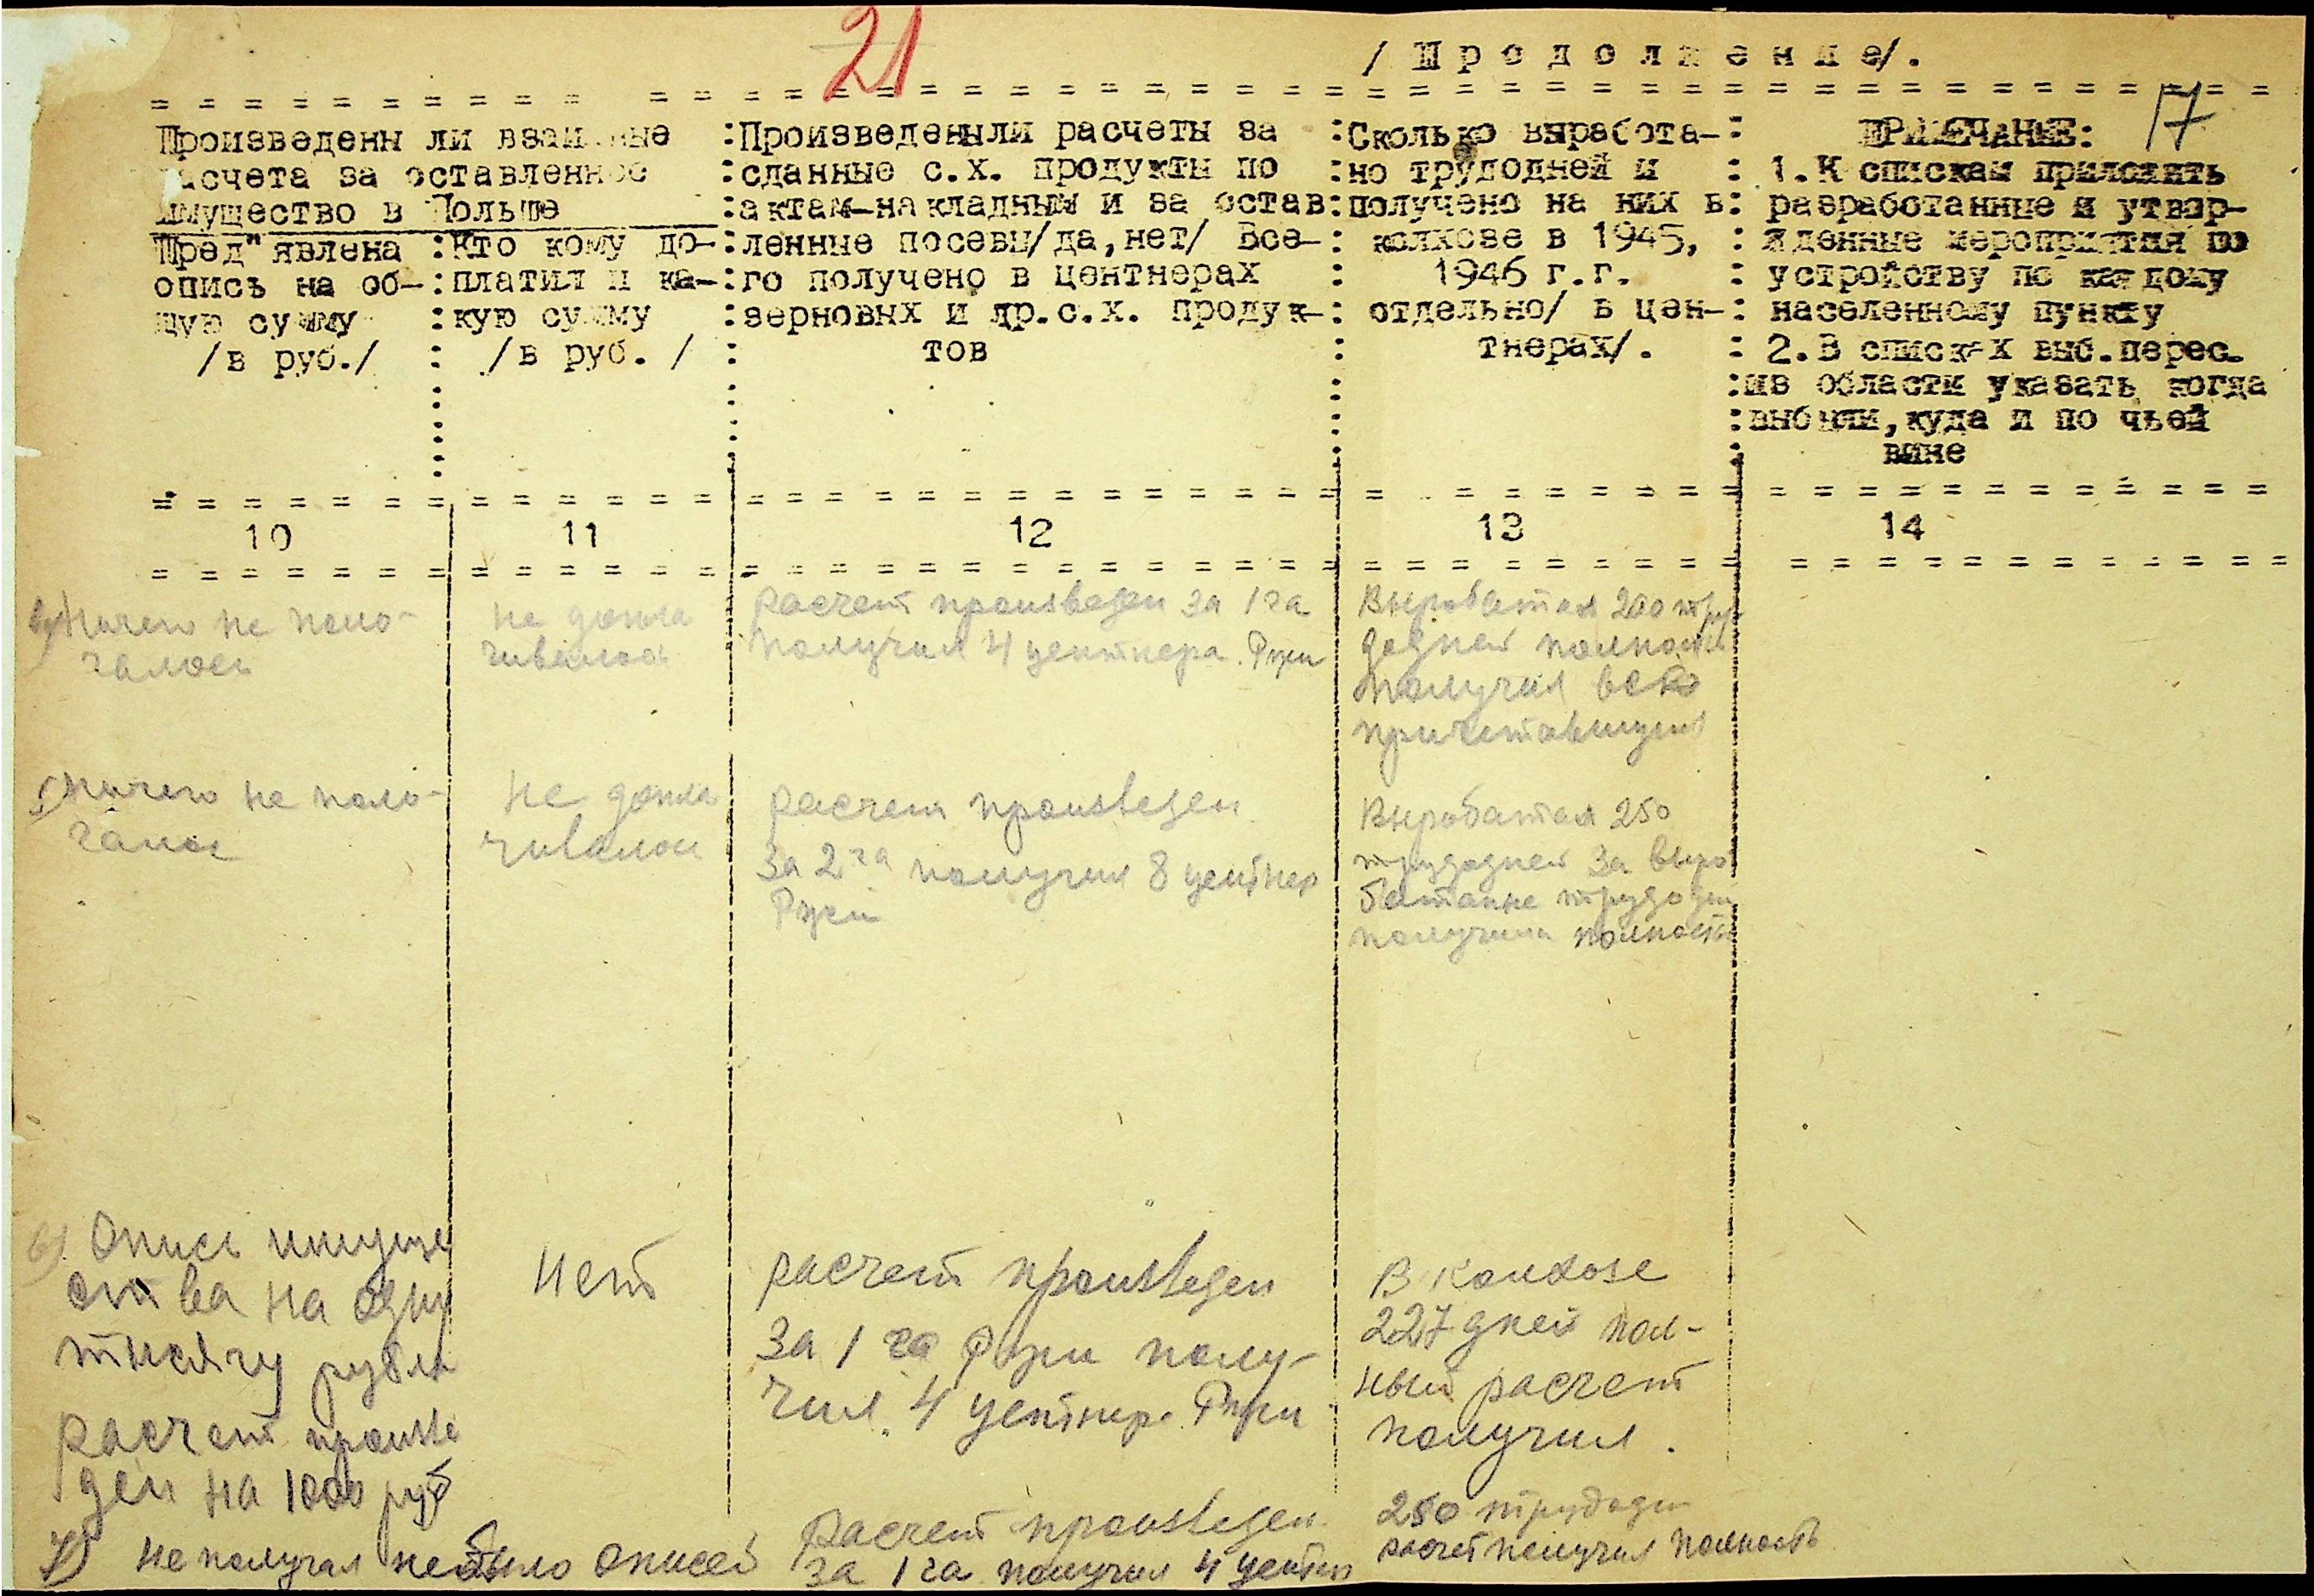 21
/ П р о д о л ж е н и е/.
17
Произведены ли взаимные
расчета за оставленное
имущество в Польше
Пред"явлена
опись на об-
щую сумму
/в руб./
Кто кому до-
платил и ка-
кую сумму
/в руб. /
Произведены ли расчеты за
сданные с.х. продукты по
актам-накладным и за остав
ленные посевы/да,нет/ Все-
го получено в центнерах
зерновых и др.с.х. продук-
тов
Сколько выработа-
но трудодней и
получено на них в
колхозе в 1945,
1946 г.г.
отдельно/ в цен-
тнерах/.
ПРИМЕЧАНИЕ:
1.К спискам приложить
разработанные и утвер-
жденные мероприятия по
устройству по каждому
населенному пункту
2.В списках выб.перес.
из области указать когда
выбыли,куда и по чьей
вине
10 11 12 13 14
Ничего не полу-
чалось
не допла
чивалось
расчет произведен за 1 га
получил 4 центнера Ржи
Выработал 200 труд
додней полность
получил все
причитавшуюся
5) Ничего не полу-
чалос
Не допла
чивалос
расчет произведен
за 2 га получил 8 центнер
Ржи
Выработал 250
трудодней за выро
ботанные трудодни
получила полность
6). Опись имуще
ства на одну
тысячу рубля
расчет произве
ден на 1000 руб
Нет
расчет произведен
за 1 га Ржи полу-
чил 4 центнера Ржи
В колхозе
227 дней пол-
ный расчет
получил.
7) не получал не было описей
Расчет произведен
за 1 га получил 4 центн
250 трудодн
расчет получил полность